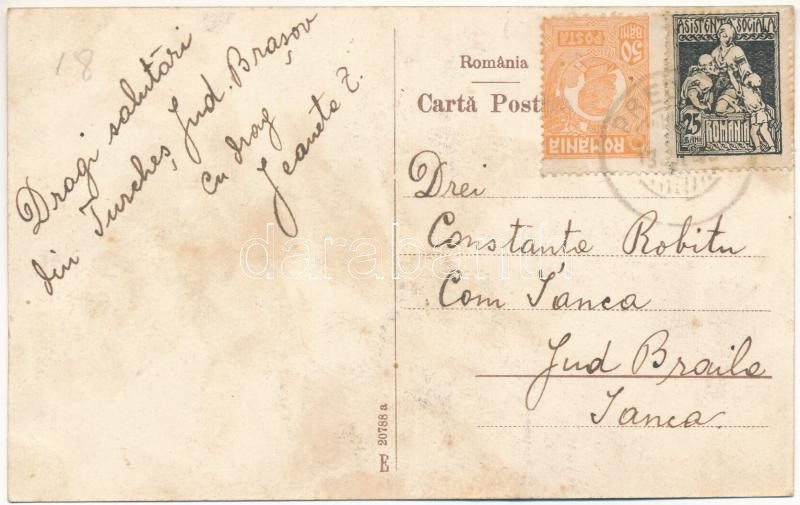 18
Dragi salutări
din Turcheș, Jud. Brașov
Cu drag
Jeaneta Z.
România
Cartă Post
50
BANI
POSTA
ROMÂNIA
ASISTENȚA SOCIALA
25
BANI
ROMÂNIA
Drei
Constanța Robitu
Com Ianca
Jud Braila
Ianca.
E 20788 a
darabanth